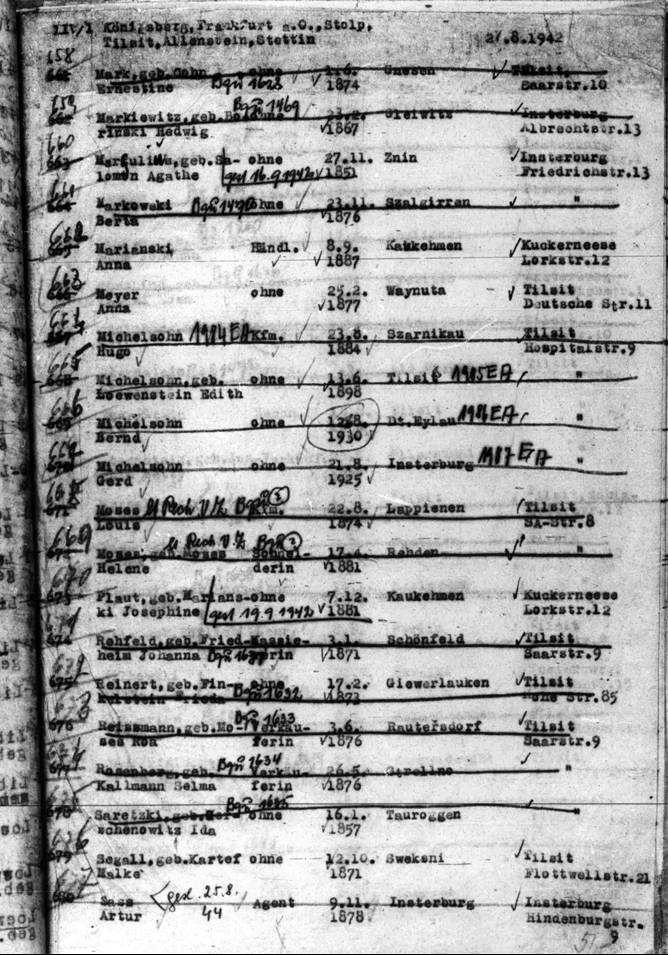 IIV/1 Königsberg, Frankfurt a.O., Stolp,
Tilsit, Allenstein, Stettin 27.8.1942
658
Mark, geb. Cohn ohne 1.6. Gnesen Tilsit
Ernestine Bgü 1628 1874 Saarstr.10
659 Bgü 1469
Markiewitz, geb. ohne 23.2. Gleiwitz Insterburg
rinski Hedwig 1867 Albrechtstr.13
660
Margulius, geb. Sa- ohne 27.11. Znin Insterburg
lomon Agathe gest 16.9.1942 1851 Friedrichstr.13
661
Markowski ohne 23.11. Szalgirren "
Berta 1876
662
Marianski Händl. 8.9. Kaukehmen Kuckerneese
Anna 1887 Lorkstr.12
663
Meyer ohne 25.2. Waynuta Tilsit
Anna 1877 Deutsche Str.11
664
Michelsohn 1984 EA Kfm. 23.8. Szarnikau Tilsit
Hugo 1884 Hospitalstr.9
665
Michelsohn, geb. ohne 13.6. Tilsit 1985 EA "
Loewenstein Edith 1898
666
Michelsohn ohne 12.8. Dt.Eylau 1986 EA "
Bernd 1930
Michelsohn ohne 21.8. Insterburg 1987 EA "
Gerd 1925
671
Moses Kfm. 22.8. Lappienen Tilsit
Louis 1874 SA-Str.8
669
Moses, geb. Moses Schnei- 17.4. Rehden "
Helene derin 1881
670
673 Plaut, geb. Marians- ohne 7.12. Kaukehmen Kuckerneese
ki Josephine gest 19.9.1942 1881 Lorkstr.12
674 Rehfeld, geb. Fried- Kassie- 3.1. Schönfeld Tilsit
heim Johanna rerin 1871 Saarstr.9
675 Reinert, geb. Fin- ohne 17.2. Giewerlauken Tilsit
Frieda Bgü 1632 1873 Hohe Str.85
Bgü 1633
676 Reissmann, geb. Mo- Verkäu- 3.6. Rautersdorf Tilsit
ses Rosa ferin 1876 Saarstr.9
Bgü 1634
677 Rosenberg, geb. Verkäu- 26.5. Strellno "
Kallmann Selma ferin 1876
678 Saretzki, geb. ohne 16.1. Tauroggen "
schenowitz Ida 1857
679 Segall, geb. Kartef ohne 12.10. Sweksni Tilsit
Malke 1871 Flottwellstr.21
680 Sass gest. 25.8. Agent 9.11. Insterburg Insterburg
Artur 44 1878 Hindenburgstr.
9